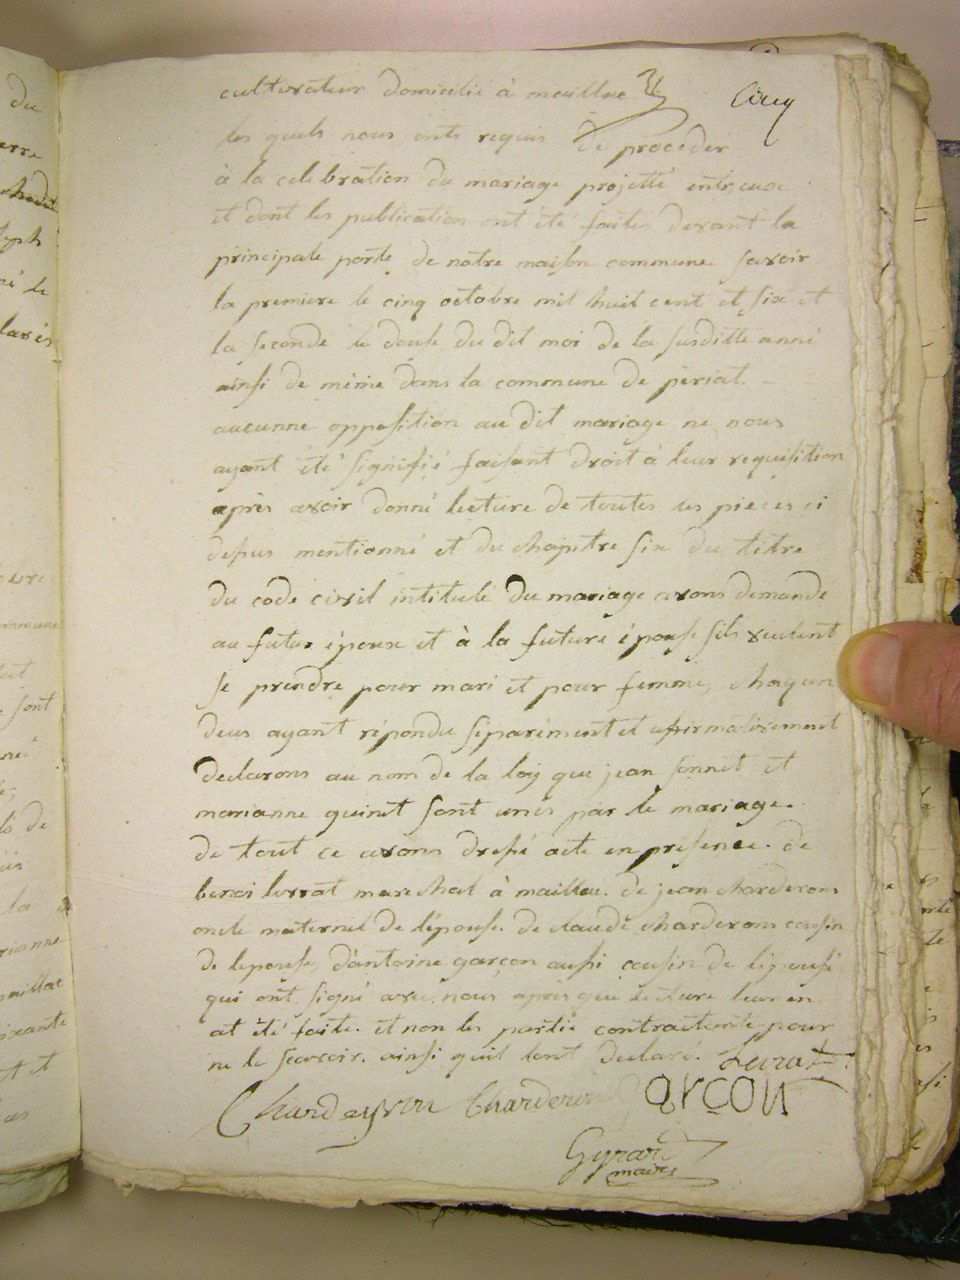 cultivateur domicilié à maillac
Cinq
les quels nous onts requis de proceder
à la celebration du mariage projetté entr,eux
et dont les publication ont été faites devant la
principale porte de notre maison commune savoir
la premiere le cinq octobre mil huit cent et six et
la seconde le douse du dit moi de la susditte anné
ainsi de mêine dans la commune de periat.
aucunne opposition au dit mariage ne nous
ayant été signifié faisant droit à leur requisition
après avoir donné lecture de toutes les pieces ci
depus mentionné et du chapitre six du titre
du code civil intitulé du mariage avons demande
au futur époux et à la future épouse s'ils veulent
se prendre pour mari et pour femme, chaqun
deux ayant répondu séparément et affirmativement
declarons au nom de la loy que jean sonnet et
marianne quinet sont unis par le mariage.
de tout ce avons dressé acte en présence. de
lurrat marechal à maillac. de jean charderons
oncle maternel de l'épouse. de claude charderons cousin
de lepouse, d'antoine garçon aussi cousin de lépouse
qui ont signé avec nous après que lecture leur en
at été faite. et non les partie contractante pour
ne le scavoir. ainsi quil lont declaré. Lurat
Chardeyron Charderon garçon
Gyrard
maire